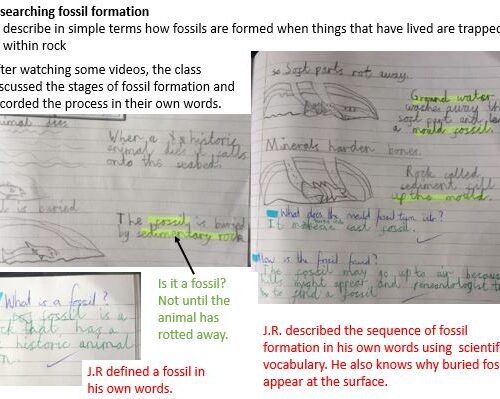 searching fossil formation
describe in simple terms how fossils are formed when things that have lived are trapped
within rock
fter watching some videos, the class
scussed the stages of fossil formation and
corded the process in their own words.
nimal dies
When a historic
animal dies it falls
onto the seabed.
is buried
The fossil is buried
by sedimentary rock
Is it a fossil?
Not until the
animal has
rotted away.
What is a fossil?
fossil is a
ck that has a
historic animal
J.R defined a fossil in
his own words.
so Soft parts rot away.
Ground water
washes away the
soft part and
a mould fossil.
Minerals harden bones.
Rock called
sediment fill
up the mould.
What does the mould fossil turn into?
It cast fossil.
How is the fossil found?
The fossil may go up to air because
might appear and
to find a fossil
J.R. described the sequence of fossil
formation in his own words using scientif
vocabulary. He also knows why buried fos
appear at the surface.